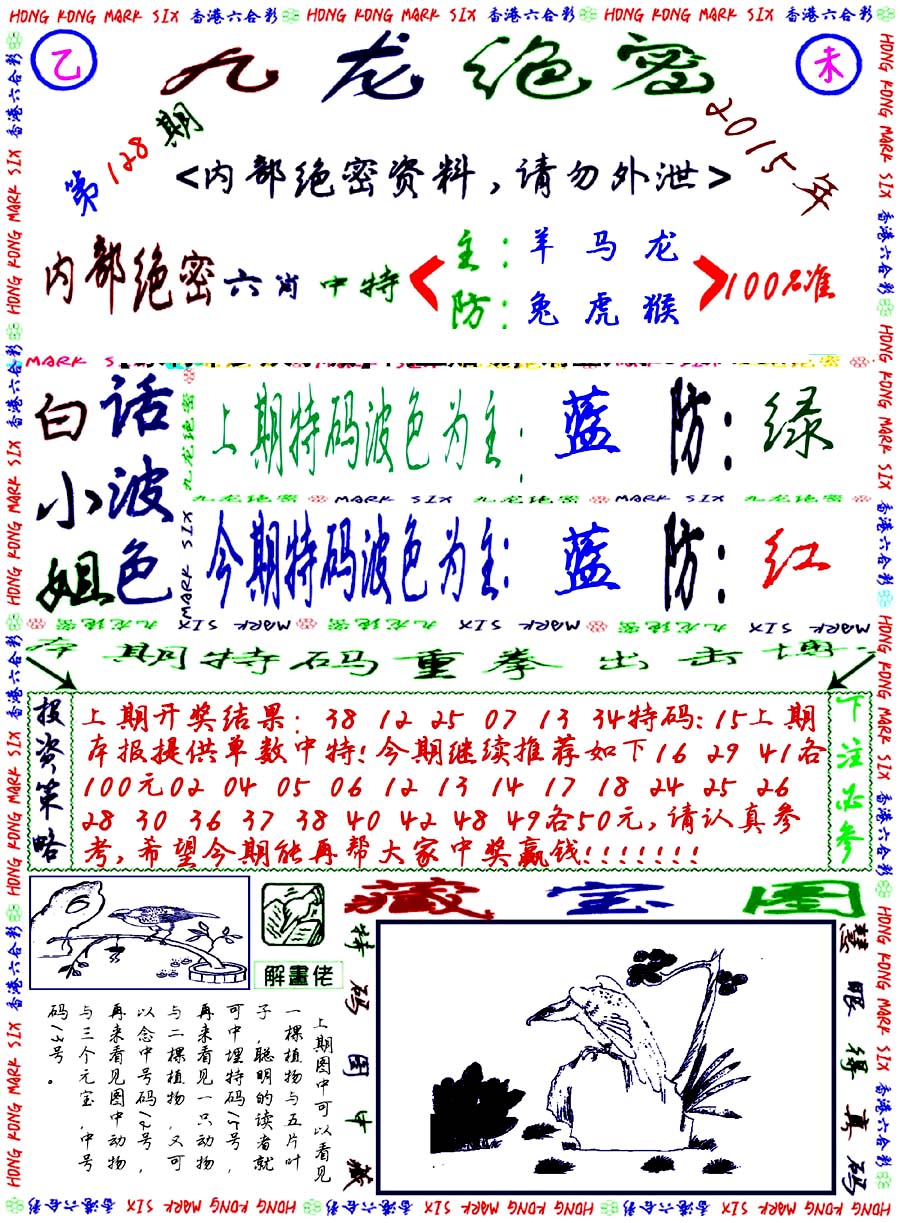 HONG KONG MARK SIX 香港六合彩 HONG KONG MARK SIX 香港六合彩 HONG KONG MARK SIX 香港六合彩
乙
九龙绝密
未
第128期
2015年
<内部绝密资料,请勿外泄>
内部绝密六肖中特
主:羊 马 龙
防:兔 虎 猴
100%准
白话小波姐色
上期特码波色为主: 蓝 防: 绿
九龙绝密 MARK SIX 九龙绝密 MARK SIX 九龙绝密
今期特码波色为主: 蓝 防: 红
九龙绝密 MARK SIX 九龙绝密 MARK SIX 九龙绝密 MARK SIX
本期特码重拳出击博
投资策略
上期开奖结果: 38 12 25 07 13 34特码:15上期
本报提供单数中特!今期继续推荐如下16 29 41各
100元02 04 05 06 12 13 14 17 18 24 25 26
28 30 36 37 38 40 42 48 49各50元,请认真参
考,希望今期能再帮大家中奖赢钱!!!!!!!
下注必参
藏宝图
解畫佬
特码图中藏
慧眼得真码
上期图中可以看见
一棵植物与五片叶
子,聪明的读者就
可中埋特码15号,
再来看见一只动物
与二棵植物,又可
以念中号码12号,
再来看见图中动物
与三个元宝,中号
码13号。
HONG KONG MARK SIX 香港六合彩 HONG KONG MARK SIX 香港六合彩 HONG KONG MARK SIX 香港六合彩